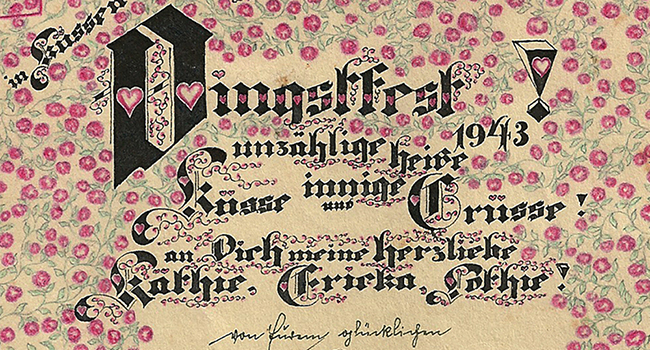 in Küssen
Pingstfest !
unzählige heiße 1943
Küsse innige und Grüsse !
an Dich meine herzliebe
Käthie, Ericka, Lothie !
von Eurem glücklichen